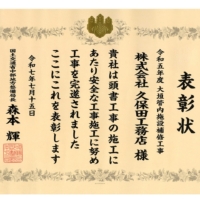 表彰状
令和五年度 大垣管内施設補修工事
株式会社 久保田工務店 様
貴社は頭書工事の施工に
あたり安全な工事施工に努め
工事を完遂されました
ここにこれを表彰します
令和七年七月十五日
国土交通省中部地方整備局長
森本 輝